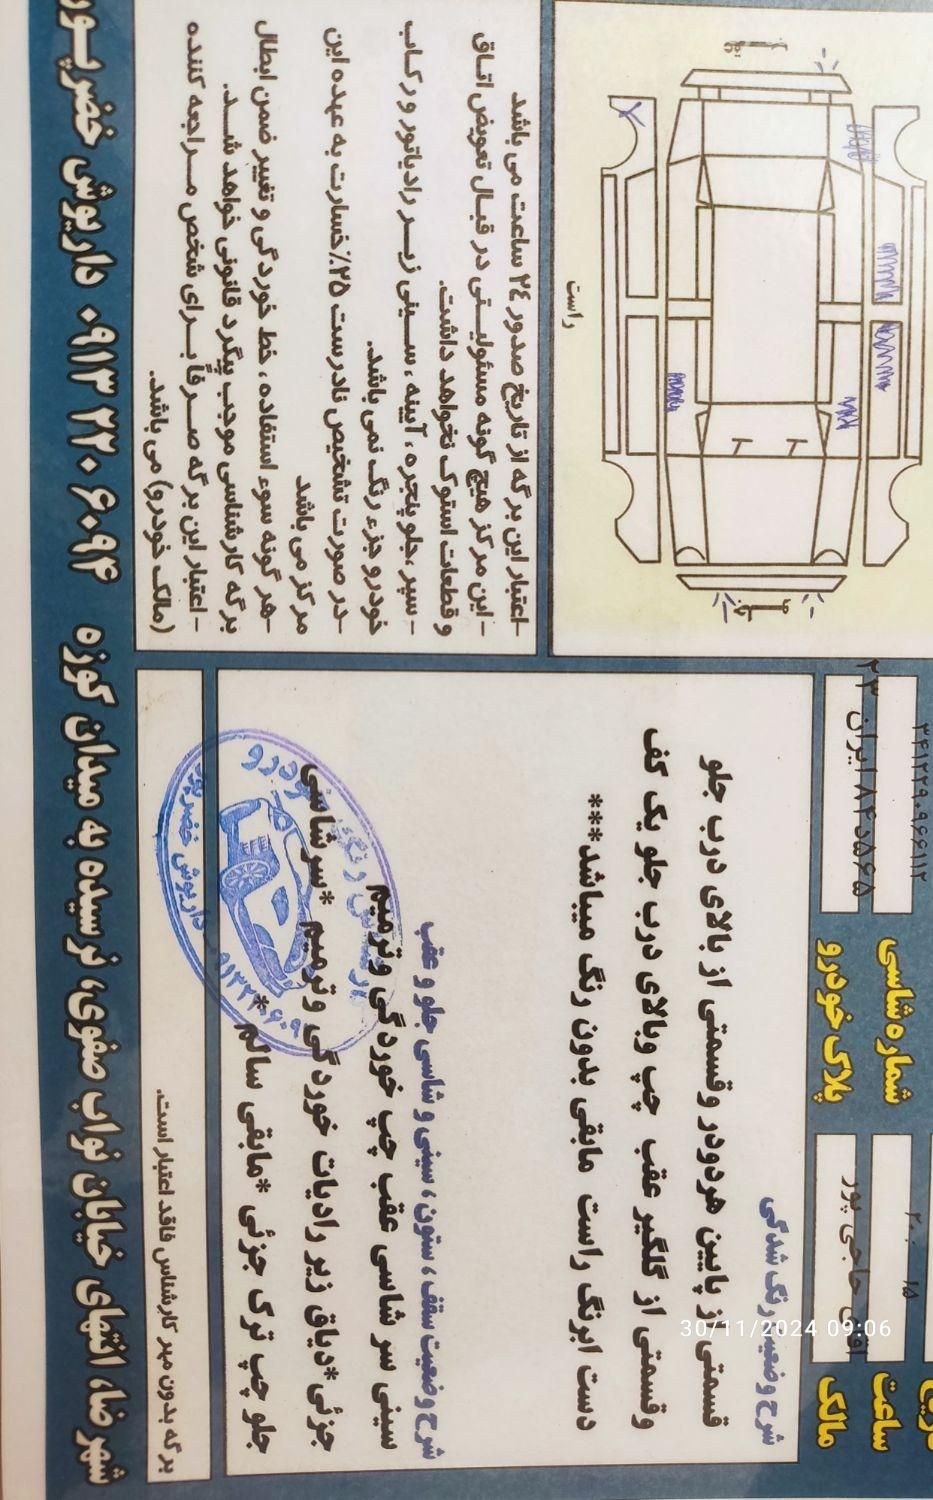 شماره شاسی
۳۴۱۲۲۹۰۹۶۶۱۱۲
ساعت
مالک
حاجی پور
پلاک خودرو
۵۶۵د۸۴ ایران ۲۳
شرح وضعیت رنگ شدگی
قسمتی از پایین هردودر وقسمتی از بالای درب جلو
وقسمتی از گلگیر عقب چپ وبالای درب جلو یک کف
دست ابرنگ راست مابقی بدون رنگ میباشد***
شرح وضعیت سقف، ستون، سینی و شاسی جلو و عقب
سینی سر شاسی عقب چپ خوردگی وترمیم
جزئی*دیاق زیر رادیات خوردگی وترمیم *سرشاسی
جلو چپ ترک جزئی *مابقی سالم *
برگه بدون مهر کارشناس فاقد اعتبار است.
داریوش خضرپور
جلو
راست
-اعتبار این برگه از تاریخ صدور ۲۴ ساعت می باشد
-این مرکز هیچ گونه مسئولیتی در قبال تعویض اتاق
و قطعات استوک نخواهد داشت.
-سپر، جلو پنجره، آیینه، سینی زیر رادیاتور و رکاب
خودرو جزء رنگ نمی باشد.
-در صورت تشخیص نادرست ۲۵٪خسارت به عهده این
مرکز می باشد
-هر گونه سوء استفاده، خط خوردگی و تغییر ضمن ابطال
برگه کارشناسی موجب پیگرد قانونی خواهد شد.
-اعتبار این برگه صرفاً برای شخص مراجعه کننده
(مالک خودرو) می باشد.
شهرضا، انتهای خیابان نواب صفوی، نرسیده به میدان کوزه ۰۹۱۳ ۲۲۰ ۶۰۹۴ داریوش خضرپور
30/11/2024 09:06